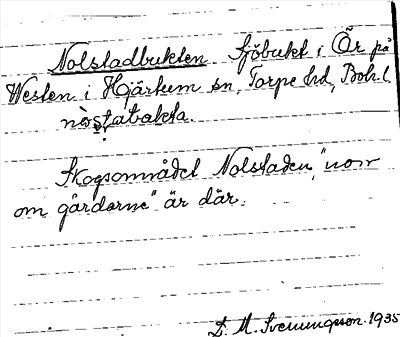 Nolstadbukten Sjöbukt i Ör på
Westen i Hjärtum sn, Torpe hd, Bohl.
nòstabakta.
Skogsområdet Nolstaden, "norr
om gårdarne" är där.
D. M. Svenungsson. 1935